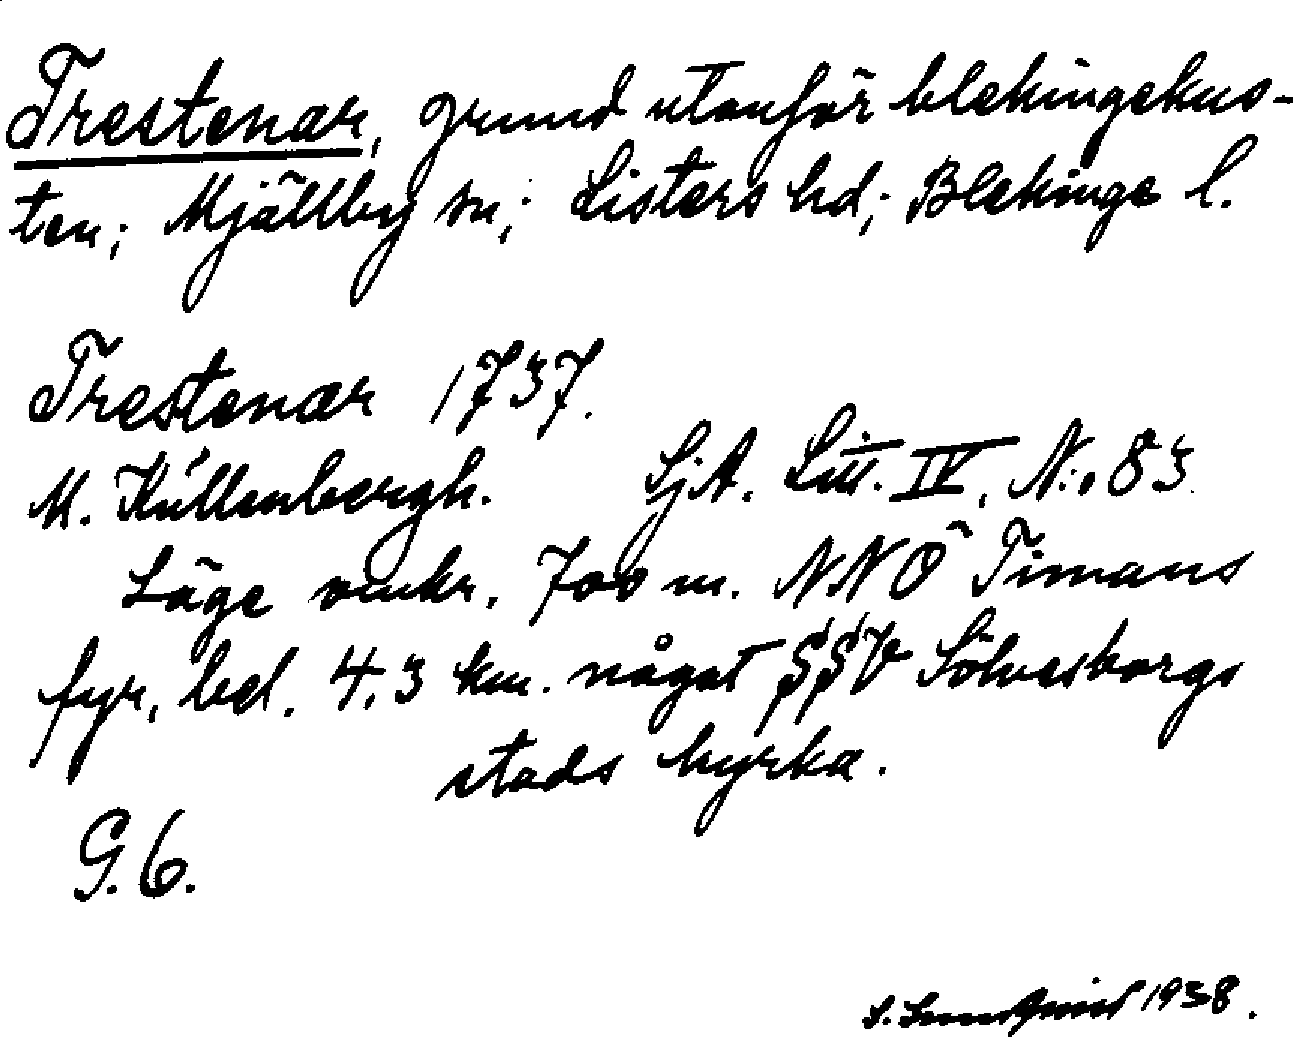 Trestenar, grund utanför blekingekus-
ten; Mjällby sn; Listers hd; Blekinge l.
Trestenar 1737.
M. Kullenbergh. SjA. Litt. IV, N:o 83.
Läge omkr. 700 m. NNÖ Timans
fyr, bel. 4,3 km. något SSV Sölvesborgs
stads kyrka.
G. 6.
S. Lundquist 1938.